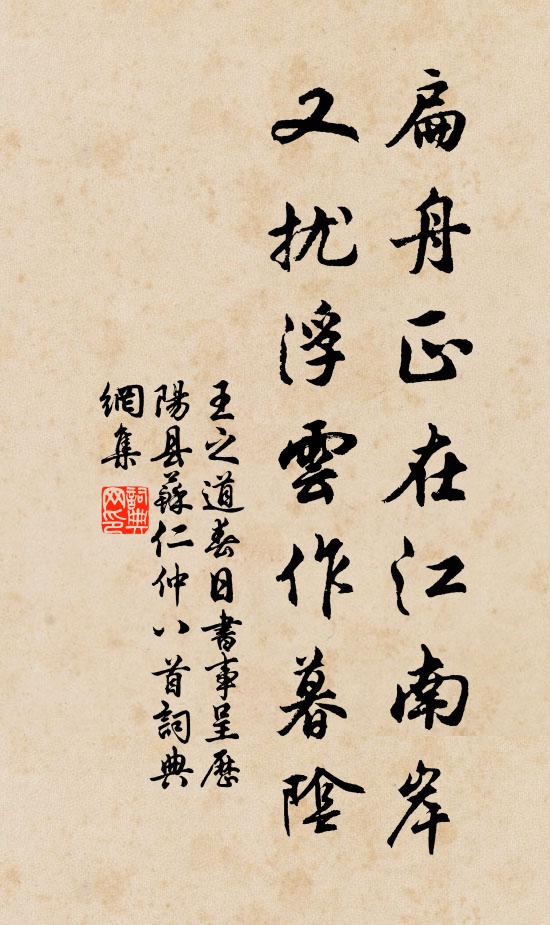 扁舟正在江南岸
又扰浮雲作暮陰
王之道春日書事呈歷
陽县蘇仁仲八首詞典
網集
詞典
网印